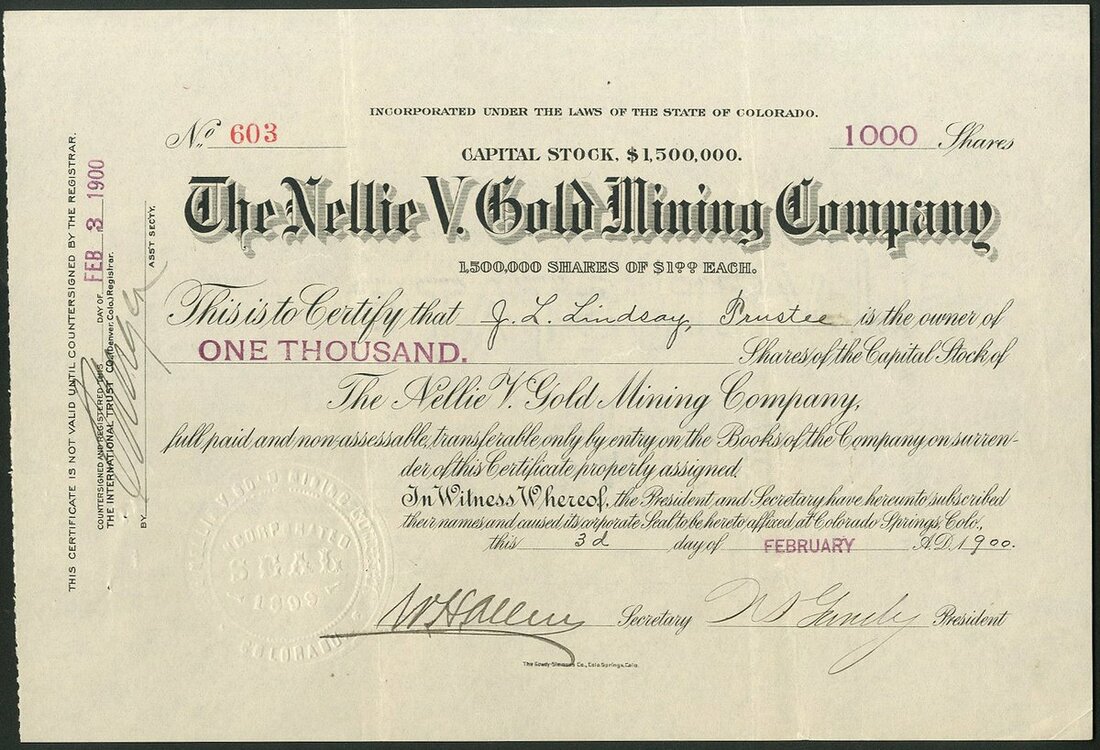 INCORPORATED UNDER THE LAWS OF THE STATE OF COLORADO.
No. 603
1000 Shares
CAPITAL STOCK, $1,500,000.
The Nellie V. Gold Mining Company
1,500,000 SHARES OF $1.00 EACH.
This is to Certify that J. L. Lindsay, Trustee is the owner of
ONE THOUSAND. Shares of the Capital Stock of
The Nellie V. Gold Mining Company,
full paid and non-assessable, transferable only by entry on the Books of the Company on surren-
der of this Certificate properly assigned.
In Witness Whereof, the President and Secretary have hereunto subscribed
their names and caused its corporate Seal to be hereto affixed at Colorado Springs, Colo.,
this 3d day of FEBRUARY A.D. 1900.
W H Allen Secretary President
The Gowdy-Simmons Co., Colo Springs, Colo.
THIS CERTIFICATE IS NOT VALID UNTIL COUNTERSIGNED BY THE REGISTRAR.
COUNTERSIGNED AND REGISTERED THIS DAY OF FEB 3 1900
THE INTERNATIONAL TRUST CO. (Denver, Colo.) Registrar.
BY ASST SECTY.
NELLIE V. GOLD MINING COMPANY
INCORPORATED
SEAL
1899
COLORADO